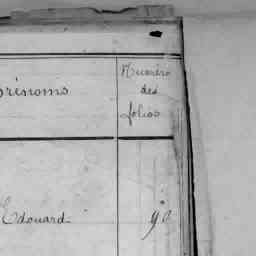 Prénoms
Numéro
des
folios
Edouard
90